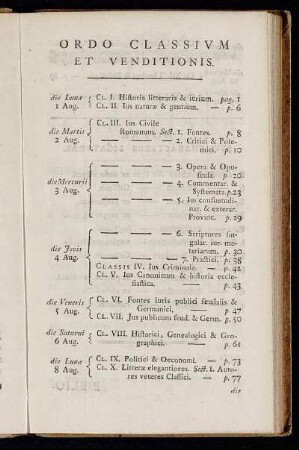 ORDO CLASSIVM
ET VENDITIONIS.
die Lunæ
1 Aug.
CL. I. Historia litteraria & iurium. pag. 1
CL. II. Ius naturæ & gentium. — p. 6
die Martis
2 Aug.
CL. III. Ius Civile
Romanum. Sect. 1. Fontes. p. 8
— — — 2. Critici & Pole-
mici. — p. 10
die Mercurii
3 Aug.
— — — 3. Opera & Opu-
scula. p 20.
— — — 4. Commentar. &
Systemata p.23
— — — 5. Ius consuetudi-
nar. & exterar.
Provinc. p. 29
die Jovis
4 Aug.
— — — 6. Scriptores sin-
gular. iur. ma-
teriarum. p. 30
— — — 7. Practici. p. 38
CLASSIS IV. Ius Criminale. — p. 42
CL. V. Ius Canonicum & historia eccle-
siastica. — p. 43
die Veneris
5 Aug.
CL. VI. Fontes Iuris publici feudalis &
Germanici, — p 47
CL. VII. Jus publicum feud. & Germ. p. 50
die Saturni
6 Aug.
CL. VIII. Historici, Genealogici & Geo-
graphici. — — p. 61
die Lunæ
8 Aug.
CL. IX. Politici & Oeconomi. — p. 73
CL. X. Litteræ elegantiores. Sect. 1. Auto-
res veteres Classici. — p. 77
die